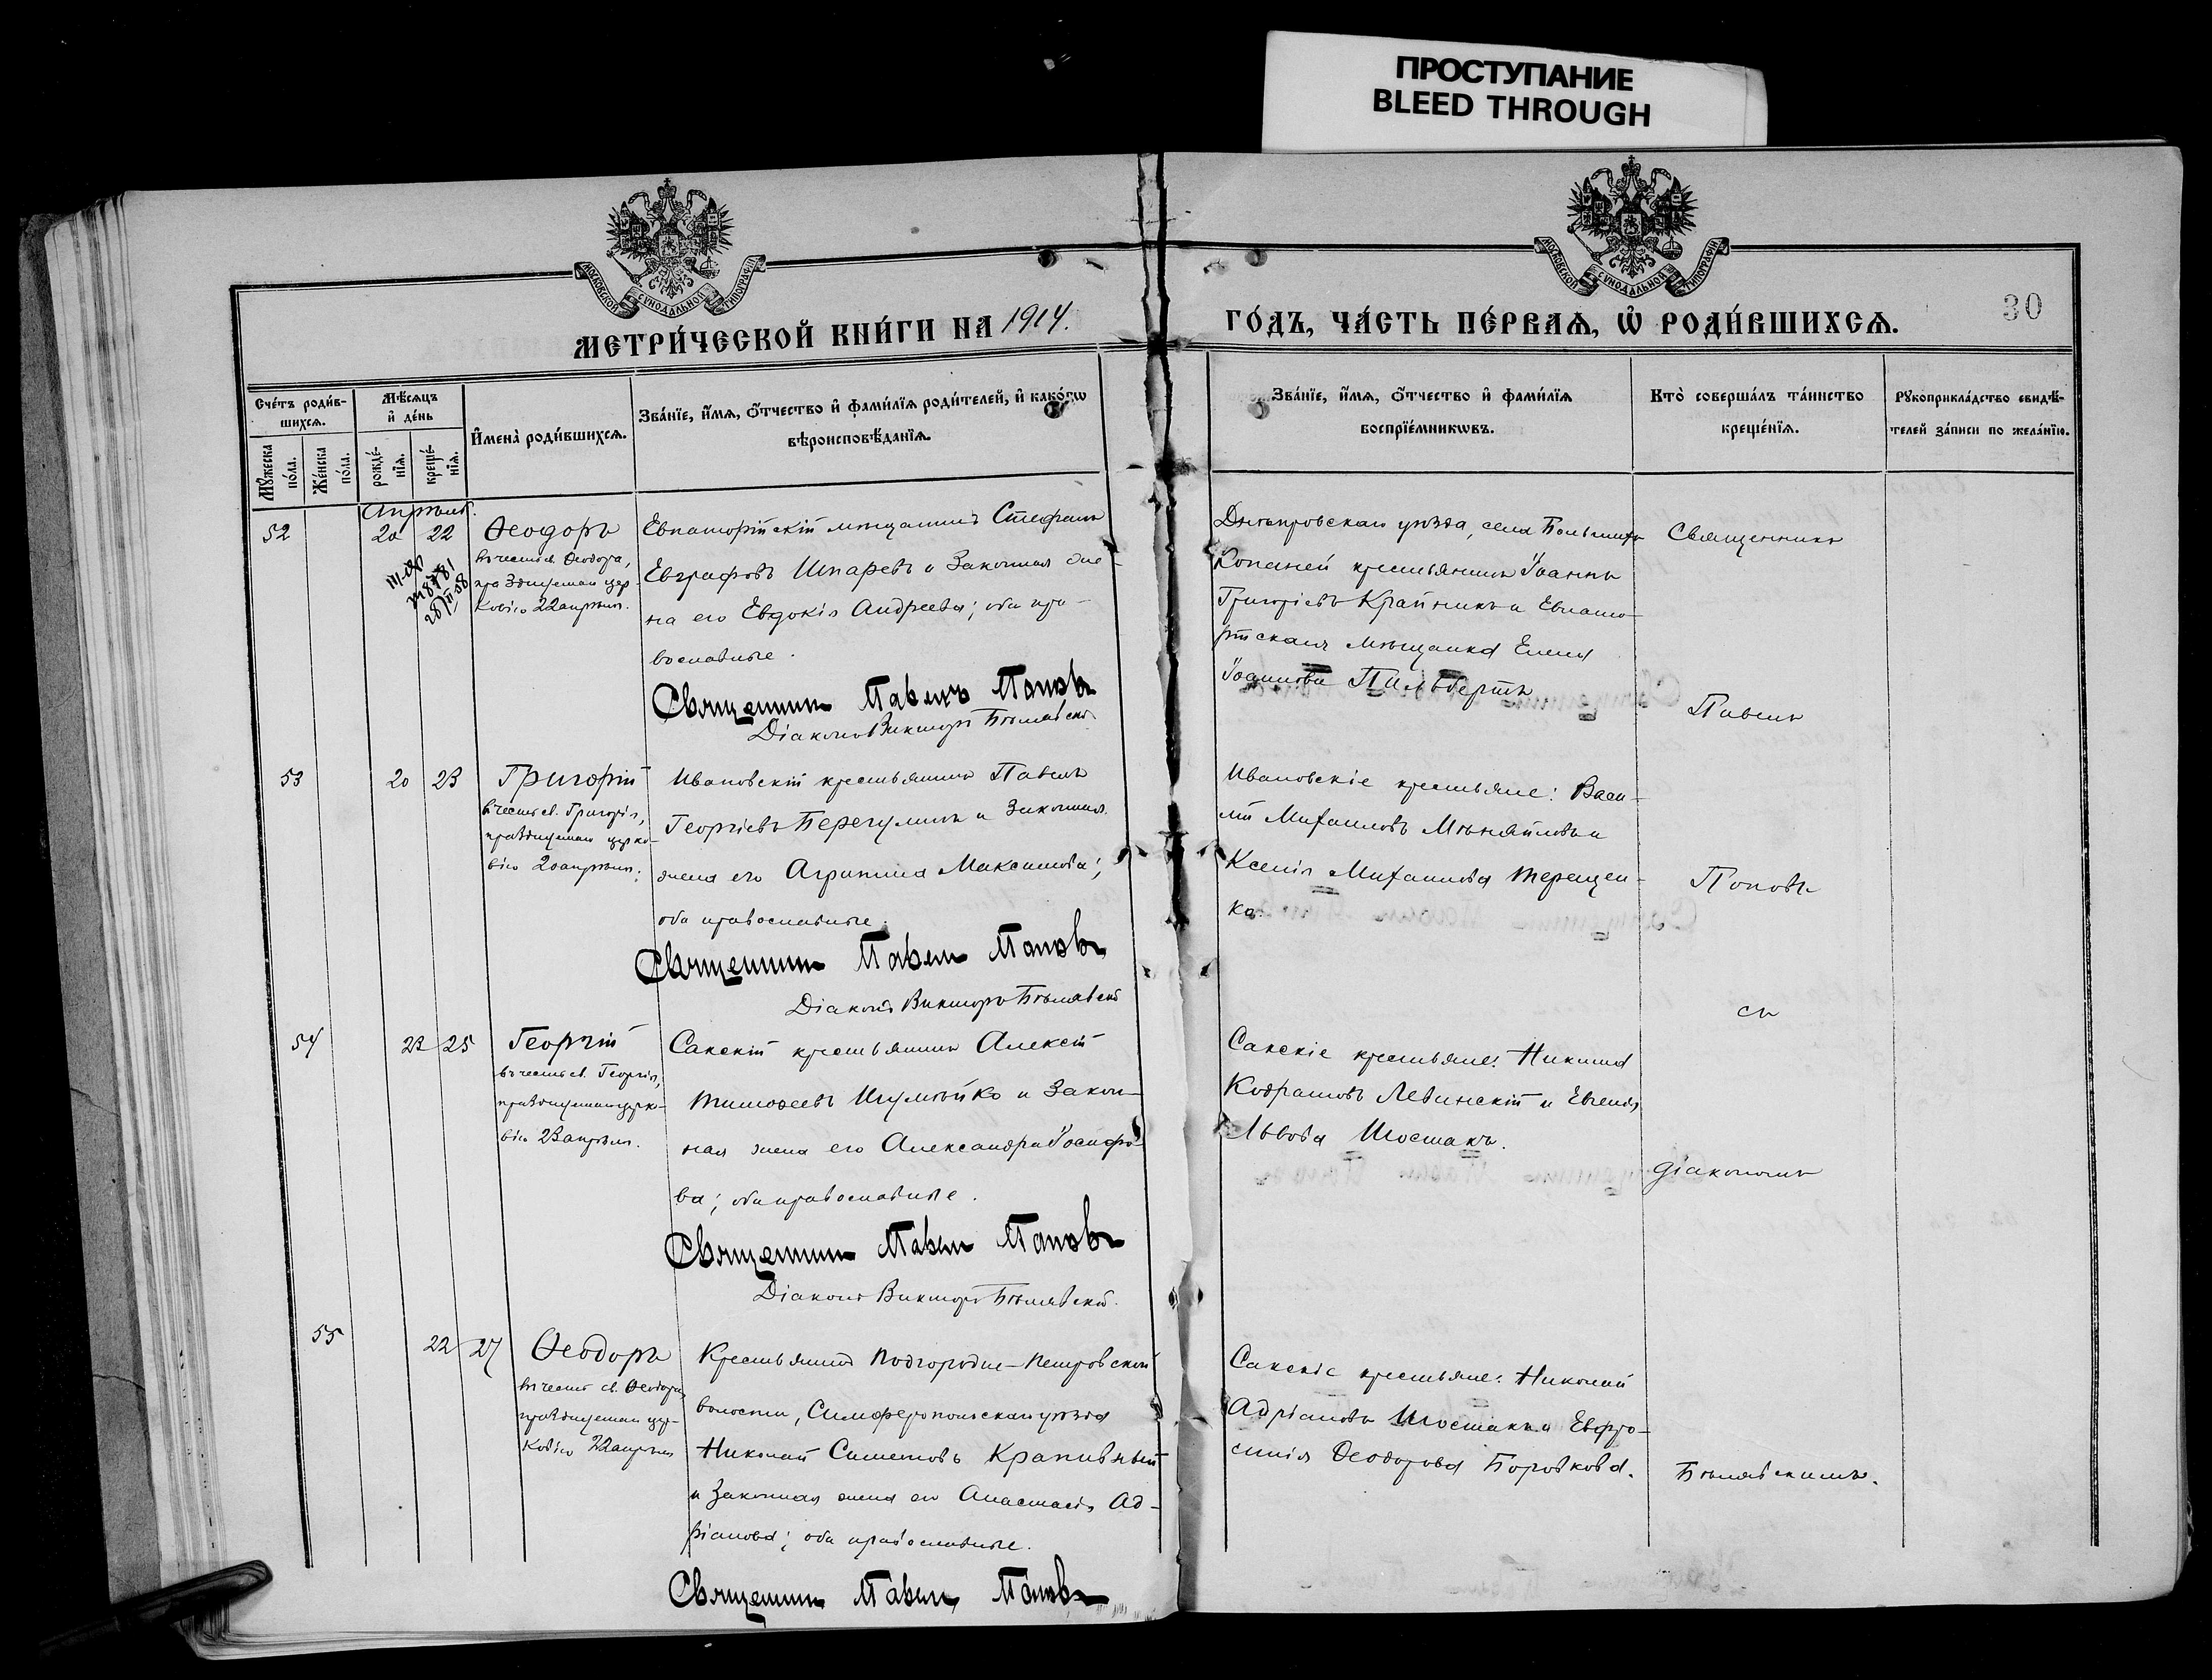 ПРОСТУПАНИЕ
BLEED THROUGH
МОСКОВСКОЙ СУНОДАЛЬНОЙ ТИПОГРАФІИ
МОСКОВСКОЙ СУНОДАЛЬНОЙ ТИПОГРАФІИ
МЕТРИ́ЧЕСКОЙ КНИ́ГИ НА 1914.
ГО́ДЪ, ЧА́СТЬ ПЕ́РВАѦ, Ѽ РОДИ́ВШИХСѦ.
30
Сче́тъ роди́в-
шихсѧ.
Мѣ́сѧцъ
и҆ де́нь
Мꙋ́жеска
по́ла.
Же́нска
по́ла.
рожде́-
нїѧ.
креще́-
нїѧ.
И҆мена̀ роди́вшихсѧ.
Зва́нїе, и҆́мѧ, ѻ҆́тчество и҆ фами́лїѧ роди́телей, и҆ како́гѡ
вѣроисповѣ́данїѧ.
Зва́нїе, и҆́мѧ, ѻ҆́тчество и҆ фами́лїѧ
воспрїе́мникѡвъ.
Кто̀ соверша́лъ та́инство
креще́нїѧ.
Рꙋкоприкла́дство свидѣ́-
телей за́писи по жела́нїю.
Апрѣль.
52
20
22
Ѳеодоръ
въ честь св. Ѳеодора,
празднуемаго цер-
ковію 22 апрѣля.
Евпаторійскій мѣщанинъ Стефанъ
Евграфовъ Шпаревъ и законная же-
на его Евдокія Андреева; оба пра-
вославные.
Священникъ Павелъ Поповъ
Діаконъ Викторъ Бѣлявскій
Днѣпровскаго уѣзда, села Большихъ
Копаней крестьянинъ Іоаннъ
Григорьевъ Крайникъ и Евпато-
рійская мѣщанка Елена
Іоаннова Пильбертъ
Священникъ
Павелъ
53
20
23
Григорій
въ честь св. Григорія,
празднуемаго церко-
вію 20 апрѣля.
Ивановскій крестьянинъ Павелъ
Георгіевъ Перегулинъ и законная
жена его Агрипина Максимова;
оба православные.
Священникъ Павелъ Поповъ
Діаконъ Викторъ Бѣлявскій
Ивановскіе крестьяне: Васи-
лій Михаиловъ Мѣняйловъ и
Ксенія Михаилова Терещен-
ко.
Поповъ
съ
54
23
25
Георгій
въ честь св. Георгія,
празднуемаго церко-
вію 23 апрѣля.
Сакскій крестьянинъ Алексій
Тимоѳеевъ Шумѣйко и закон-
ная жена его Александра Іосифо-
ва; оба православные.
Священникъ Павелъ Поповъ
Діаконъ Викторъ Бѣлявскій.
Сакскіе крестьяне: Никита
Кодратовъ Левинскій и Евгенія
Львова Шостакъ.
діакономъ
55
22
27
Ѳеодоръ
въ честь св. Ѳеодора,
празднуемаго цер-
ковію 22 апрѣля
Крестьянинъ Подгородне-Петровской
волости, Симферопольскаго уѣзда
Николай Симеоновъ Крапивный
и законная жена его Анастасія Ад-
ріанова; оба православные.
Священникъ Павелъ Поповъ
Сакскіе крестьяне: Николай
Адріановъ Шостакъ и Евфро-
синія Ѳеодорова Боровкова.
Бѣлявскимъ.